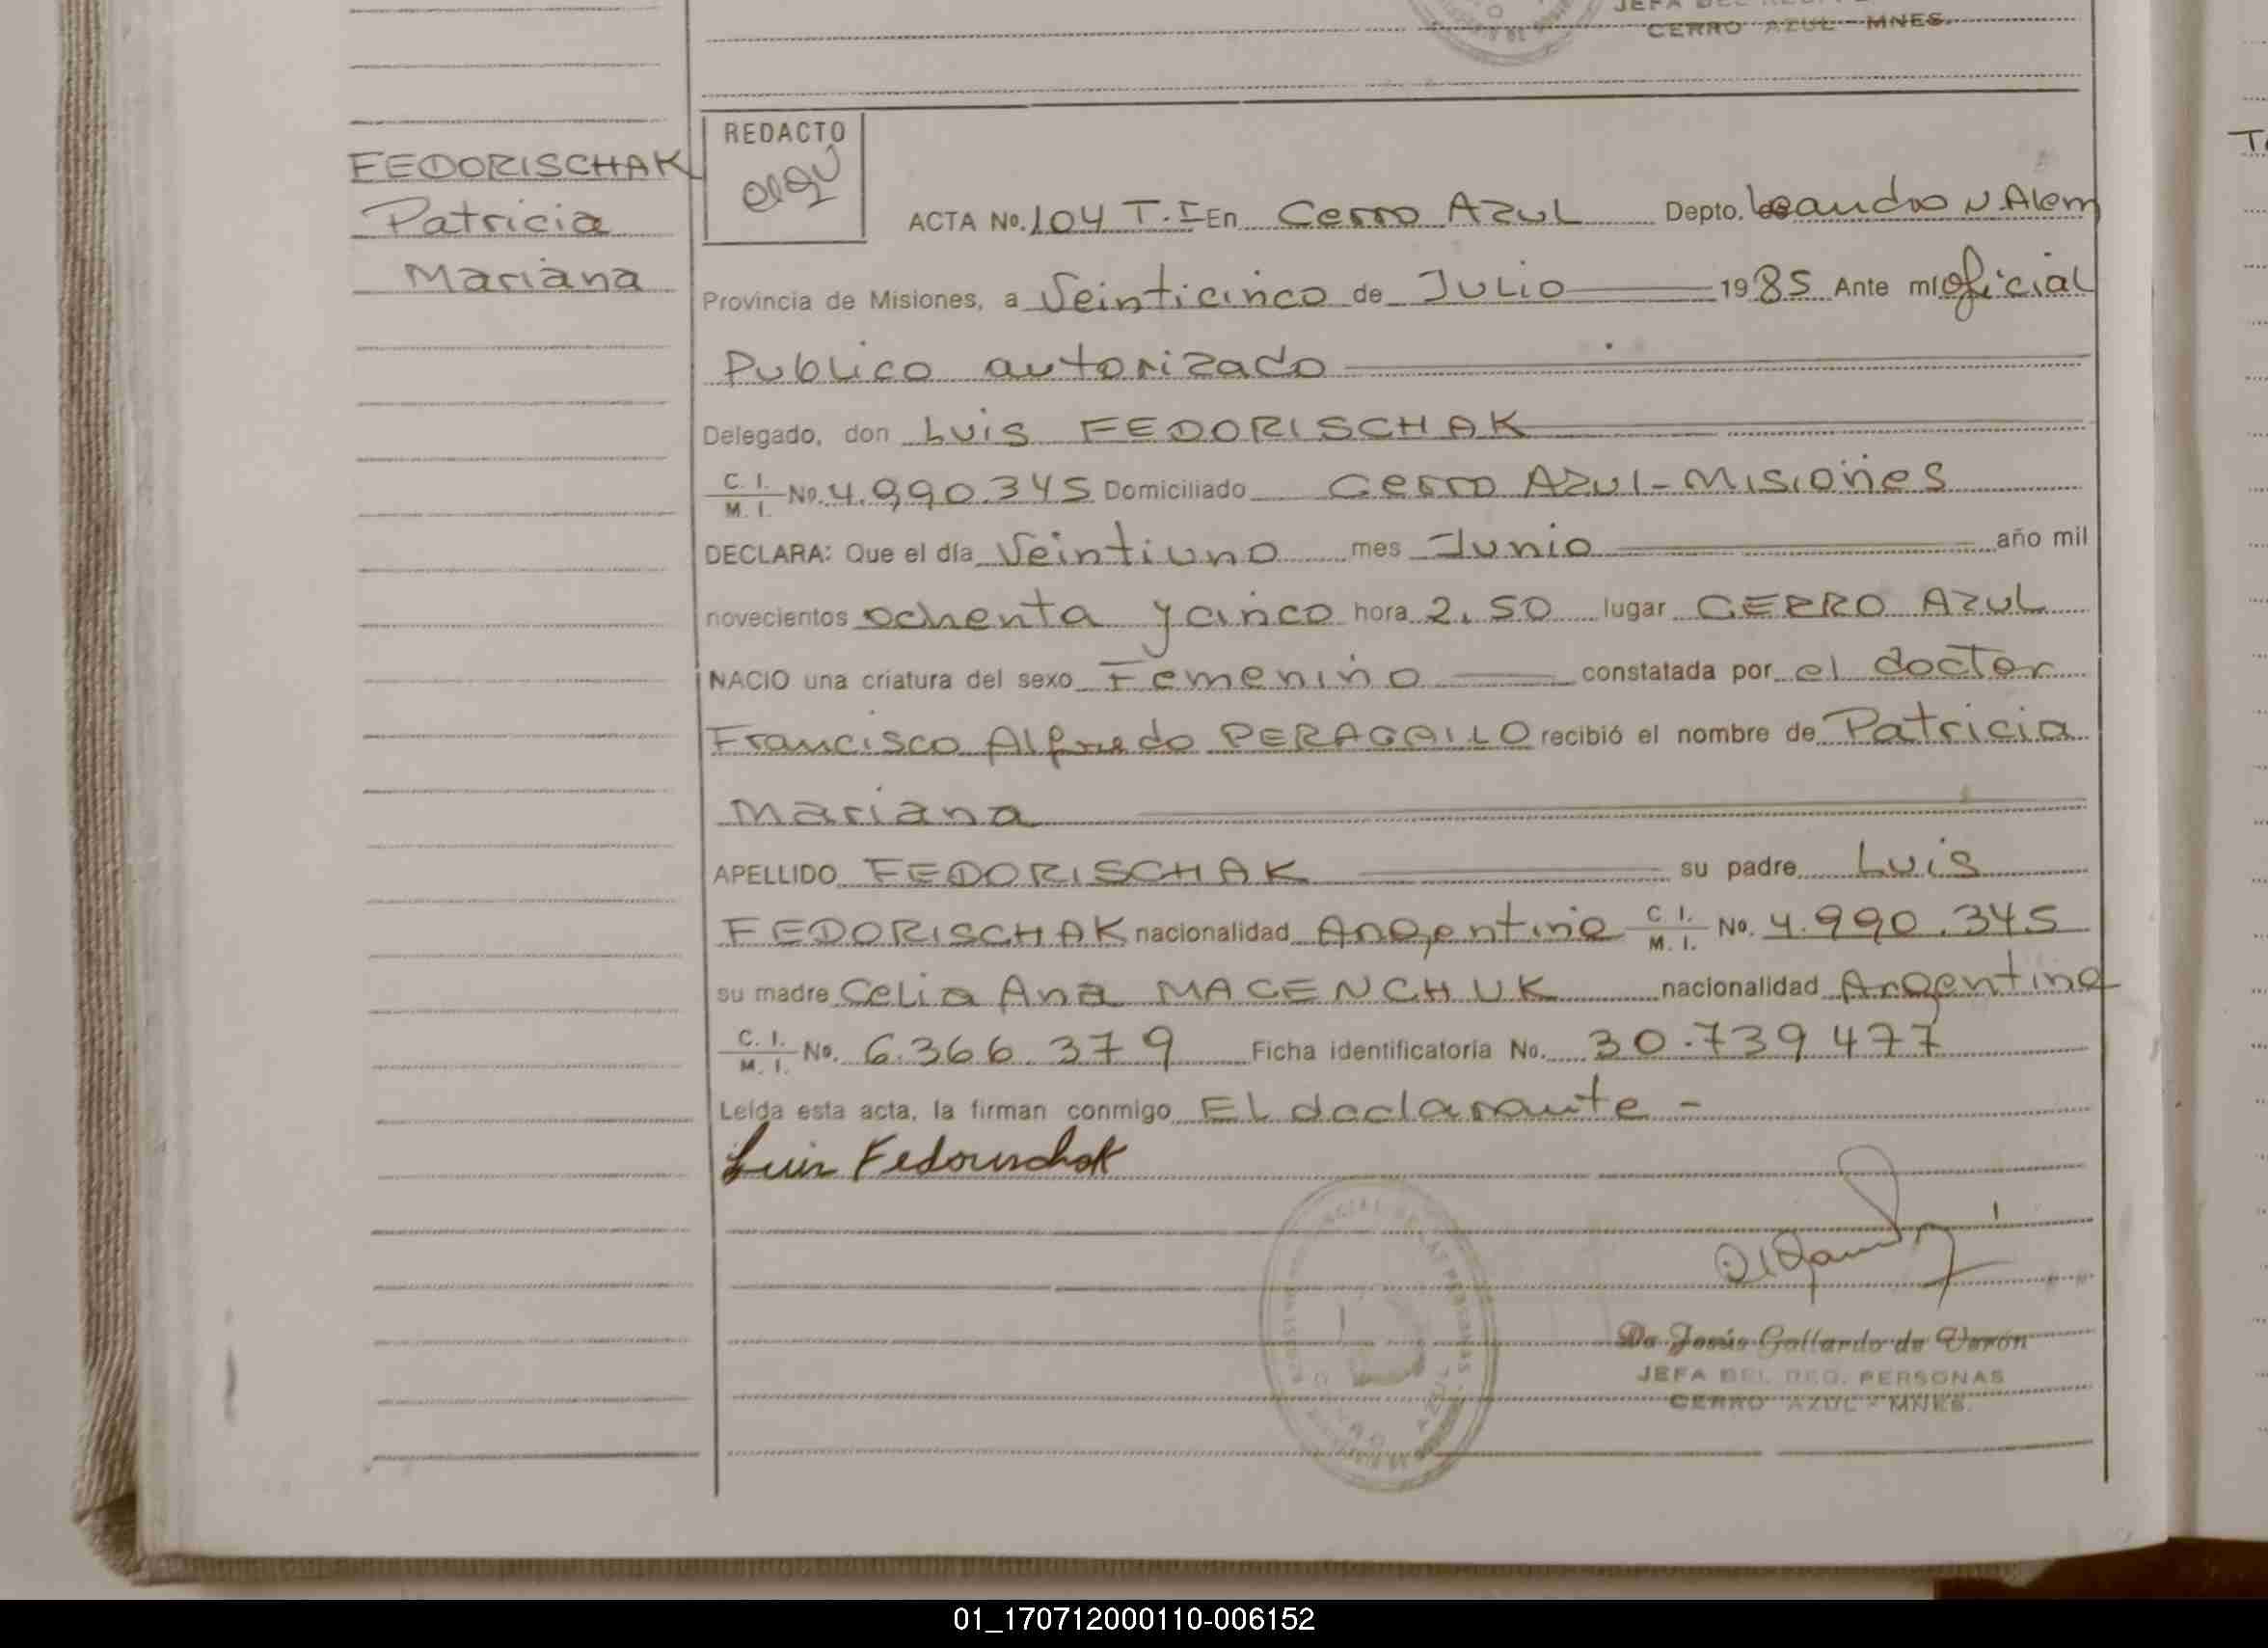 CERRO AZUL - MNES.
FEDORISCHAK
Patricia
Mariana
REDACTO
ACTA No. 104 T.I En Cerro AZUL Depto. Leandro N Alem
Provincia de Misiones, a Veinticinco de Julio 1985 Ante mi oficial
Publico autorizado
Delegado, don Luis FEDORISCHAK
C. I. / M. I. No. 4.990.345 Domiciliado Cerro AZUL-Misiones
DECLARA: Que el día Veintiuno mes Junio año mil
novecientos ochenta y cinco hora 2.50 lugar CERRO AZUL
NACIO una criatura del sexo Femenino constatada por el doctor
Francisco Alfredo recibió el nombre de Patricia
Mariana
APELLIDO FEDORISCHAK su padre Luis
FEDORISCHAK nacionalidad Argentino C. I. / M. I. No. 4.990.345
su madre Celia Ana MACENCHUK nacionalidad Argentina
C. I. / M. I. No. 6.366.379 Ficha identificatoria No. 30.739 477
Leída esta acta, la firman conmigo EL declarante -
Luis Fedorischak
Da Jesús Gallardo de Verón
JEFA DEL REG. PERSONAS
CERRO AZUL - MNES.
01_170712000110-006152